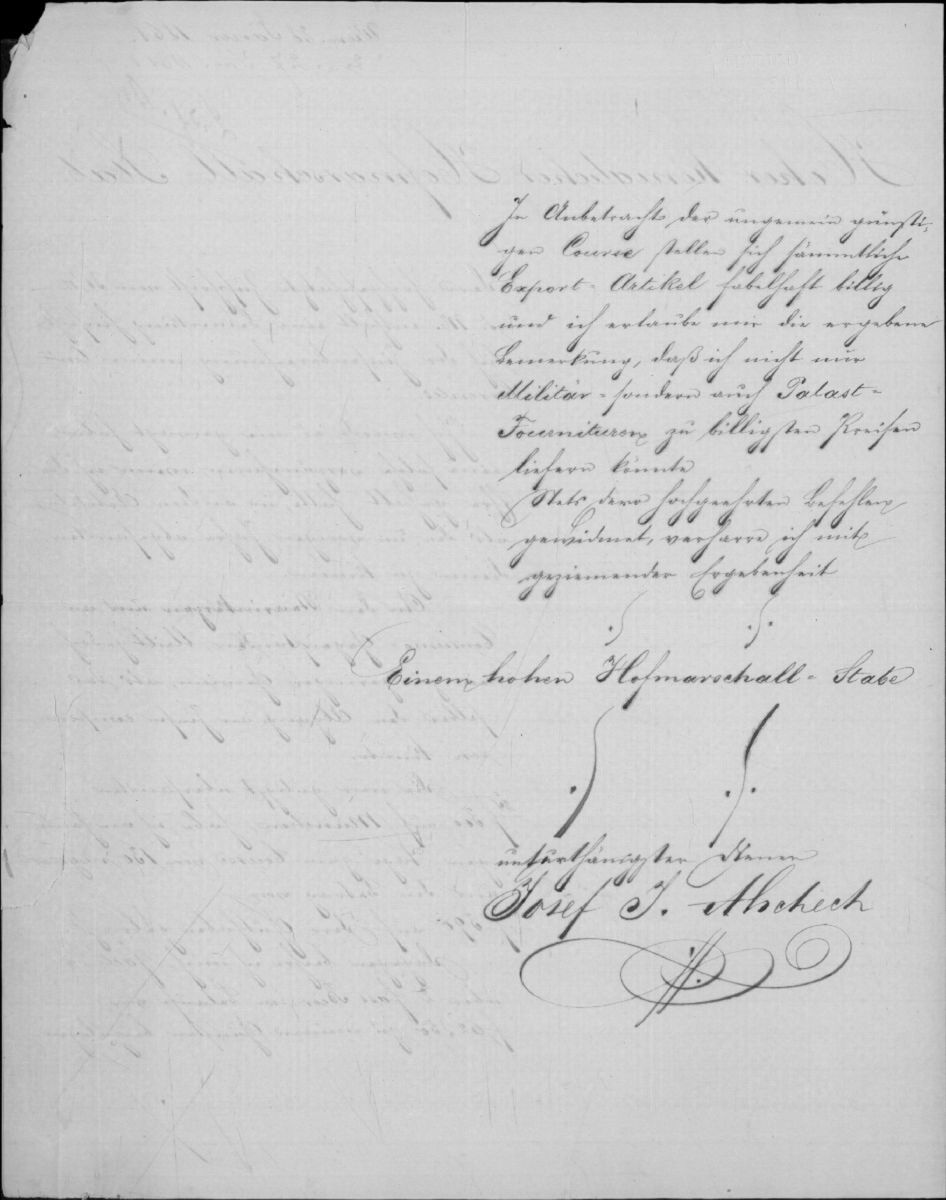 In Anbetracht der ungemein günsti-
gen Course stellen sich sämmtliche
Export-Artikel fabelhaft billig
und ich erlaube mir die ergebene
Bemerkung, daß ich nicht nur
Militär- sondern auch Palast-
Fournituren zu billigsten Preisen
liefern könnte
Stets dero hochgeehrten Befehlen
gewidmet, verharre ich mit
geziemender Ergebenheit
Einem hohen Hofmarschall-Stabe
unterthänigster Diener
Josef J. Alscheck